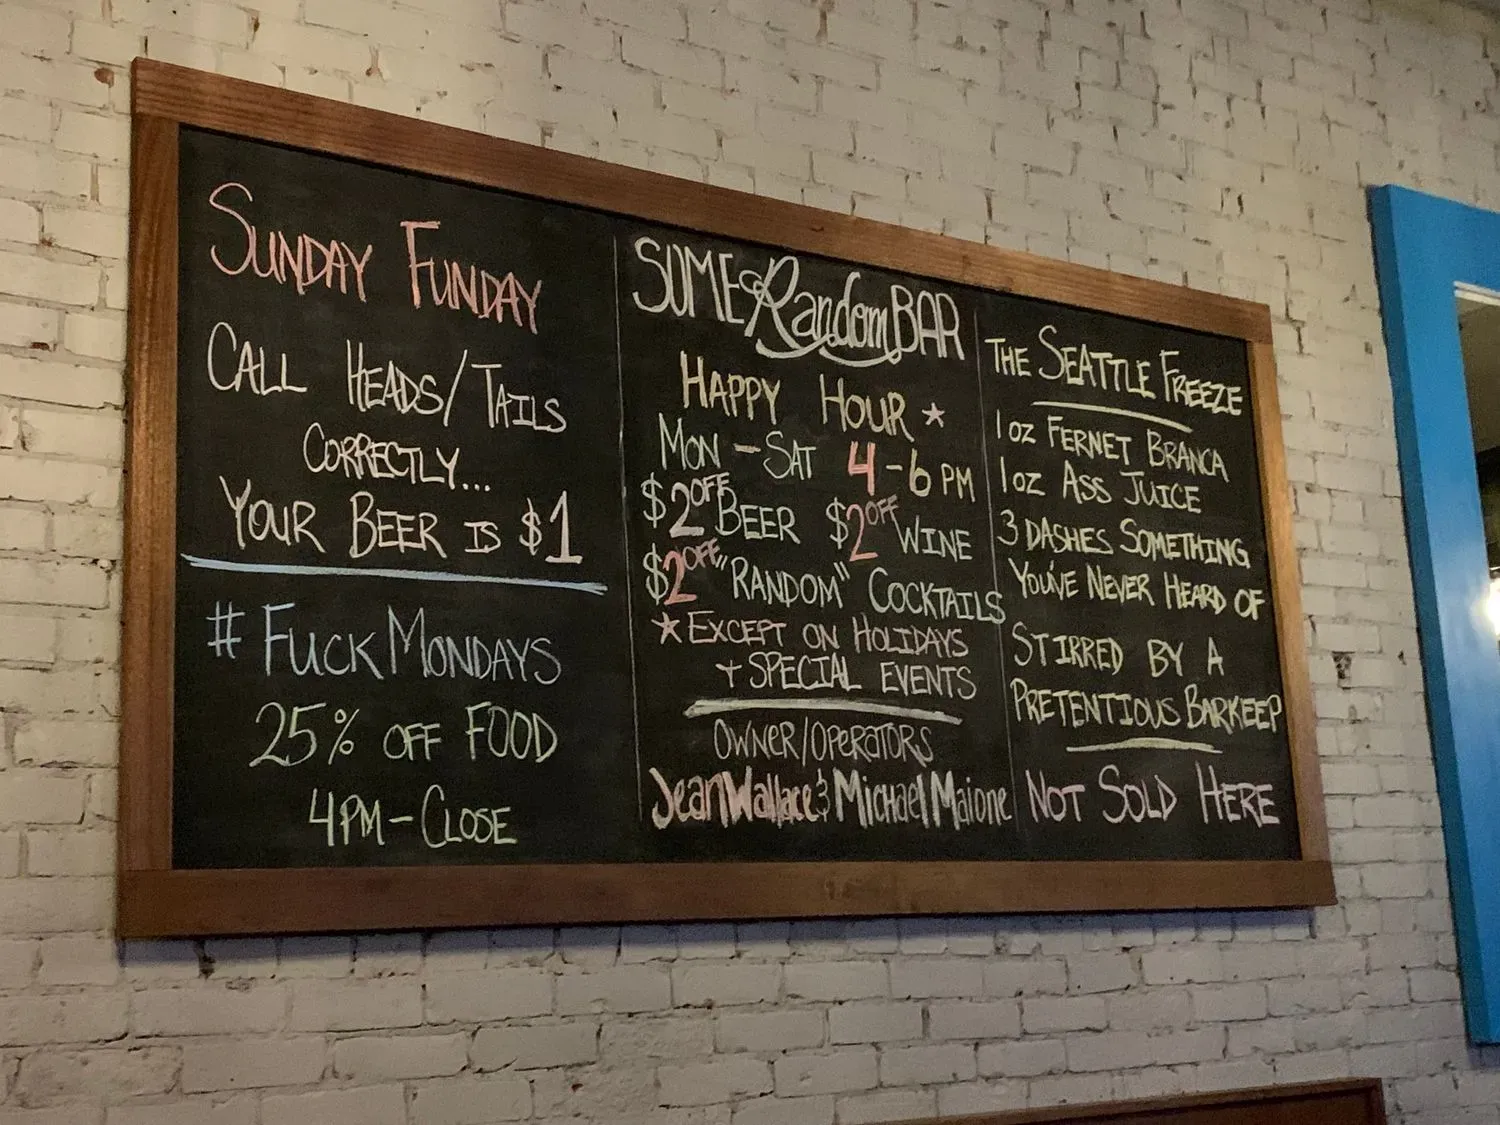 SUNDAY FUNDAY
CALL HEADS/TAILS
CORRECTLY...
YOUR BEER IS $1
#FUCKMONDAYS
25% OFF FOOD
4PM-CLOSE
SOME Random BAR
HAPPY HOUR ★
MON - SAT 4-6 PM
$2 OFF BEER $2 OFF WINE
$2 OFF "RANDOM" COCKTAILS
★ EXCEPT ON HOLIDAYS
+ SPECIAL EVENTS
OWNER/OPERATORS
Jean Wallace & Michael Maione
THE SEATTLE FREEZE
1 OZ FERNET BRANCA
1 OZ ASS JUICE
3 DASHES SOMETHING
YOU'VE NEVER HEARD OF
STIRRED BY A
PRETENTIOUS BARKEEP
NOT SOLD HERE